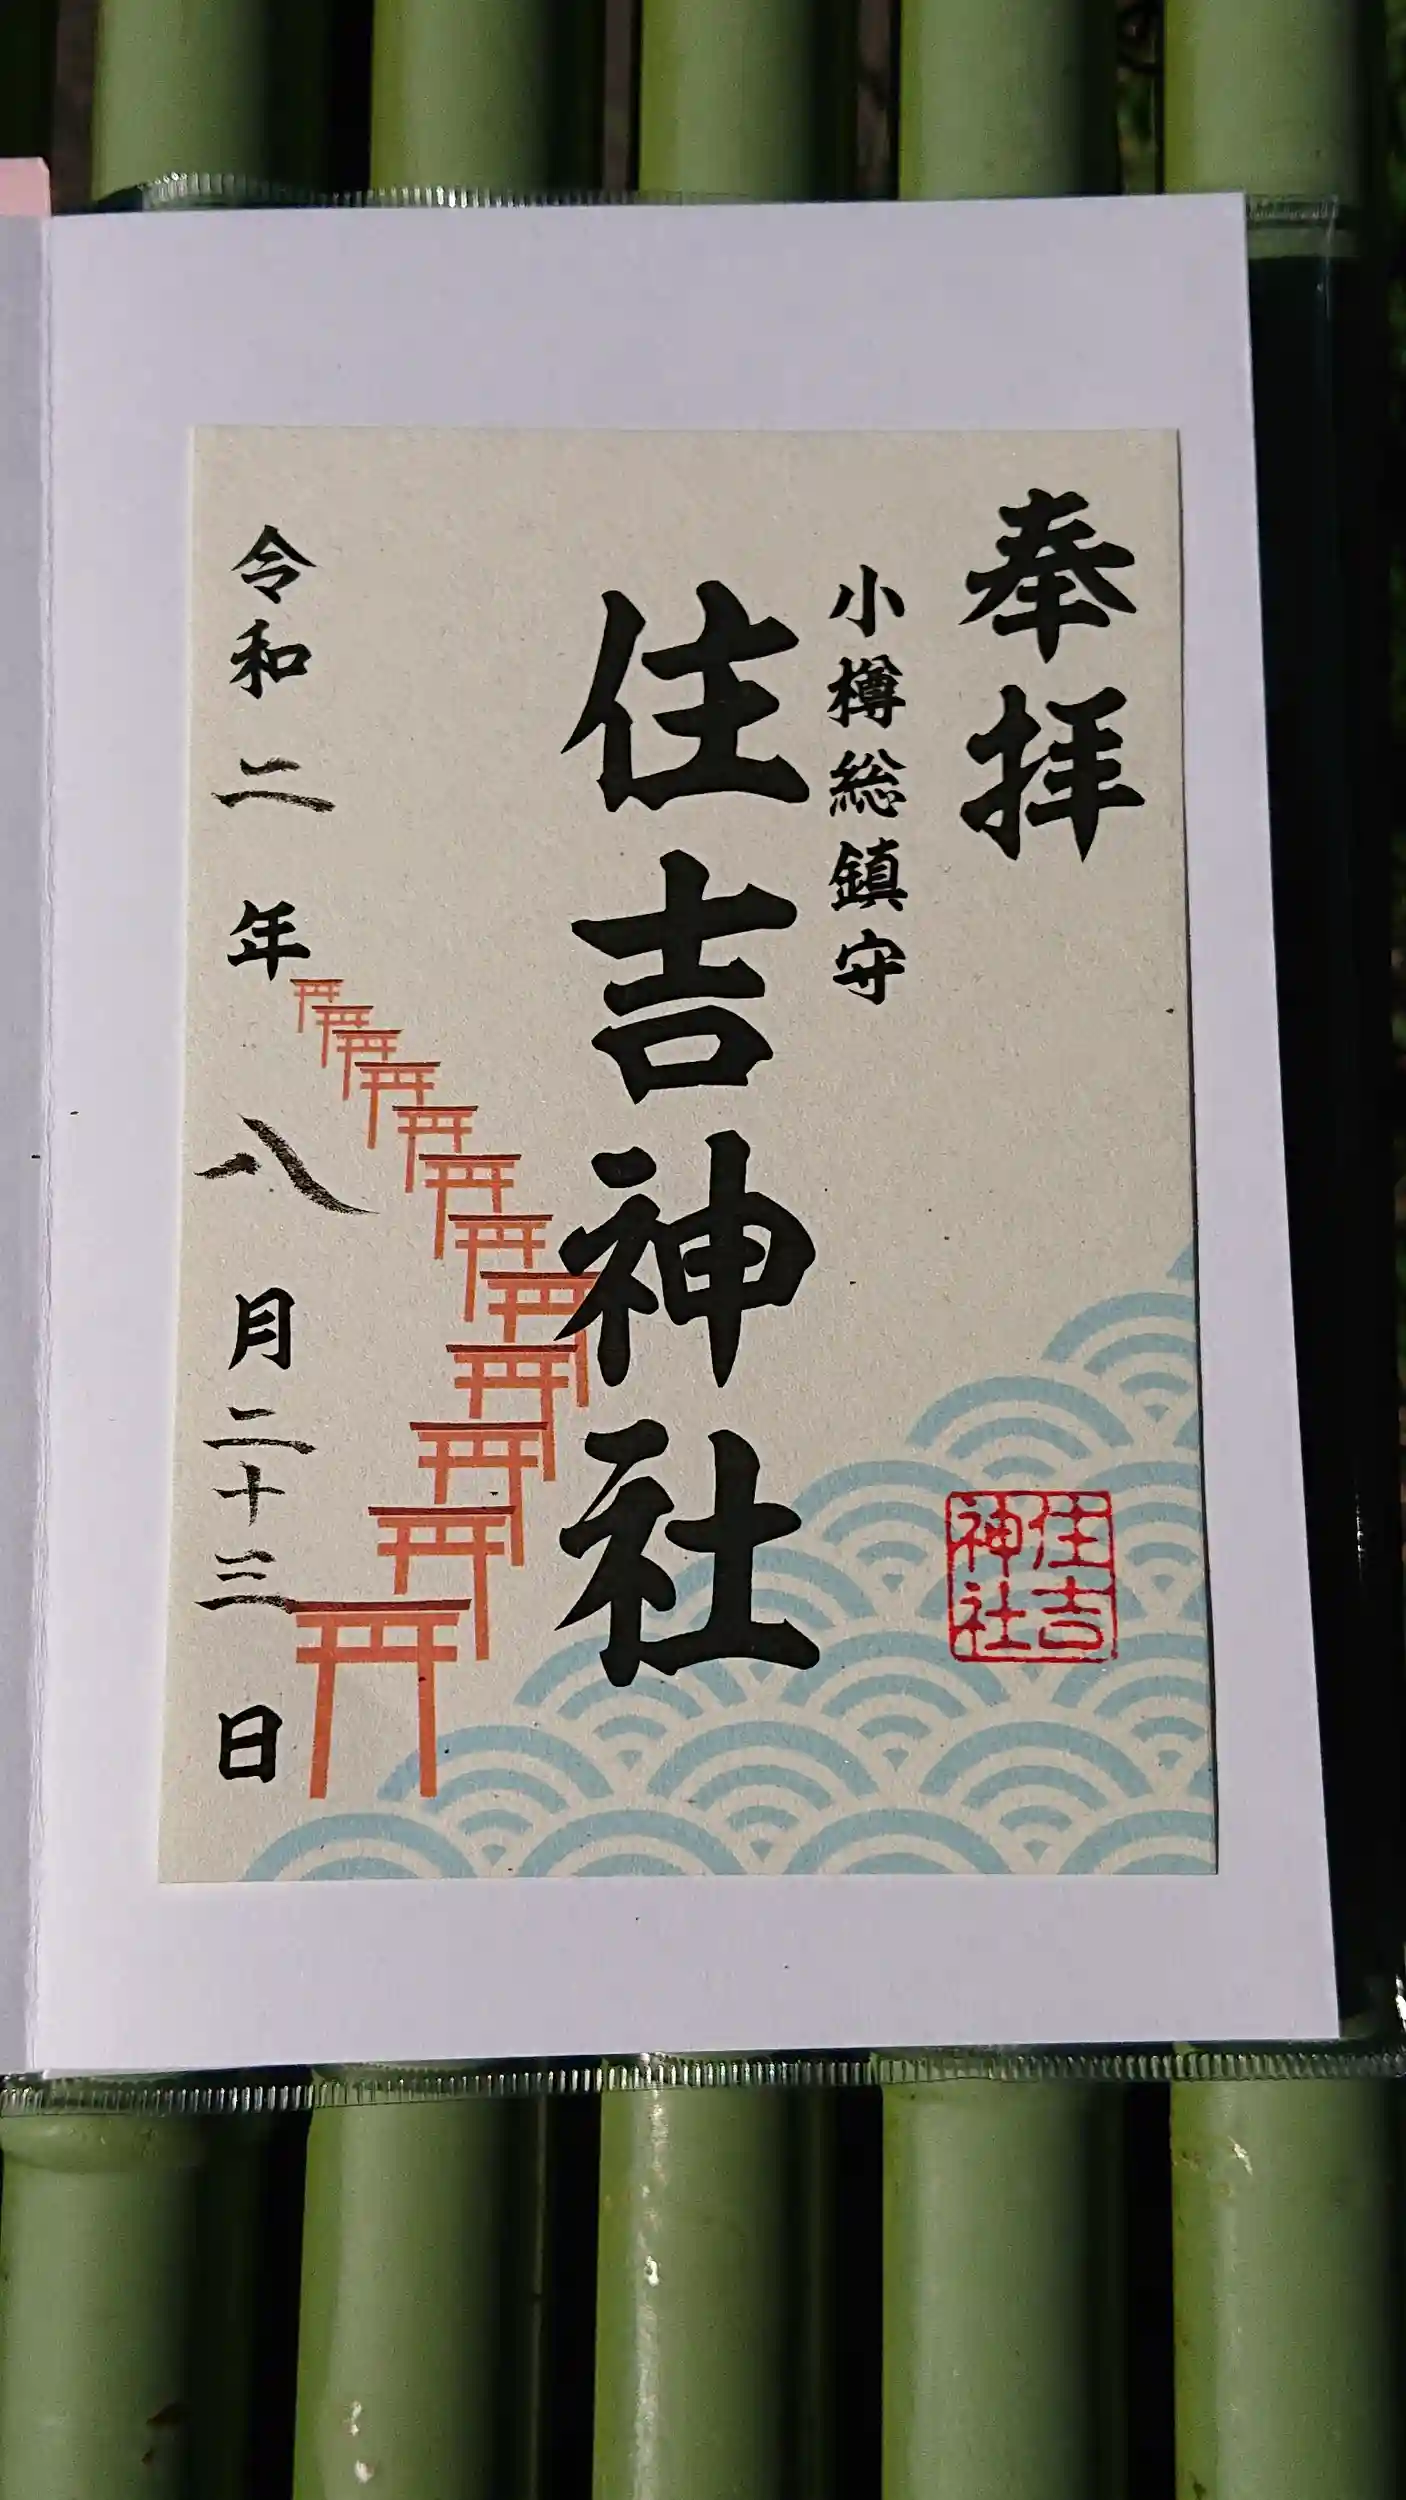 奉拝
小樽総鎮守
住吉神社
住吉
神社
令和二年八月二十三日